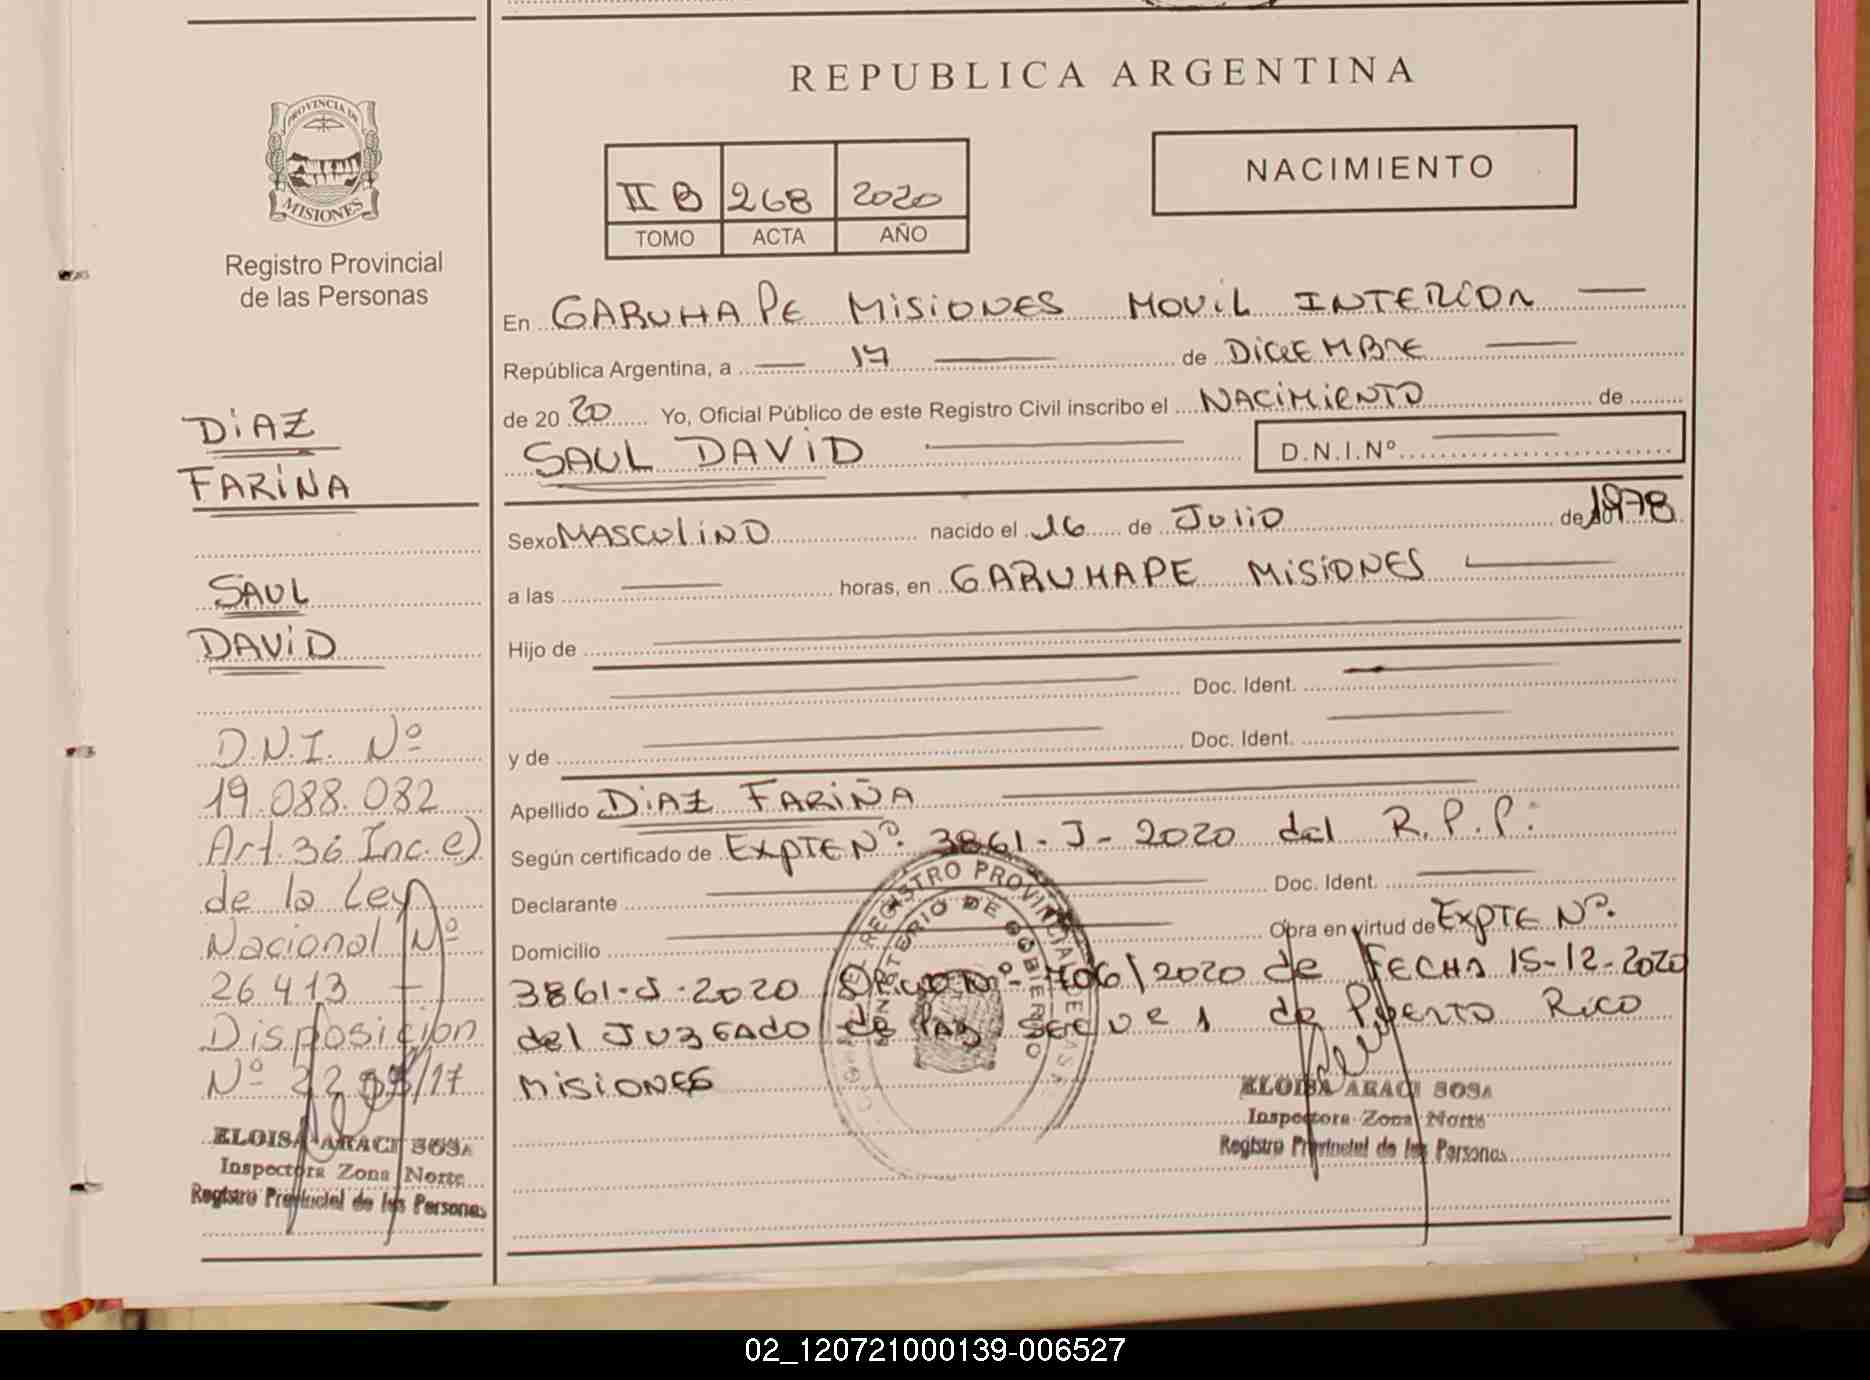 REPUBLICA ARGENTINA
NACIMIENTO
II B 268 2020
TOMO ACTA AÑO
PROVINCIA DE
MISIONES
Registro Provincial
de las Personas
DIAZ
FARINA
SAUL
DAVID
D.N.I. Nº
19.088.082
Art. 36 Inc. e)
de la Ley
Nacional Nº
26.413
Disposición
Nº /17
ELOISA ARACI SOSA
Inspectora Zona Norte
Registro Provincial de las Personas
En GARUHAPE MISIONES MOVIL INTERIOR
República Argentina, a 17 de DICIEMBRE
de 20 20 Yo, Oficial Público de este Registro Civil inscribo el NACIMIENTO de
SAUL DAVID D.N.I.Nº
Sexo MASCULINO nacido el 16 de JULIO de 1978
a las horas, en GARUHAPE MISIONES
Hijo de
Doc. Ident.
y de Doc. Ident.
Apellido DIAZ FARIÑA
Según certificado de EXPTE Nº. 3861-J-2020 del R.P.P.
Declarante Doc. Ident.
Domicilio Obra en virtud de EXPTE Nº.
3861-J-2020 Oficio Nº 706/2020 de FECHA 15-12-2020
del JUZGADO de PAZ de PUERTO RICO
MISIONES
REGISTRO PROVINCIAL DE LAS
MINISTERIO DE GOBIERNO
ELOISA ARACI SOSA
Inspectora Zona Norte
Registro Provincial de las Personas
02_120721000139-006527